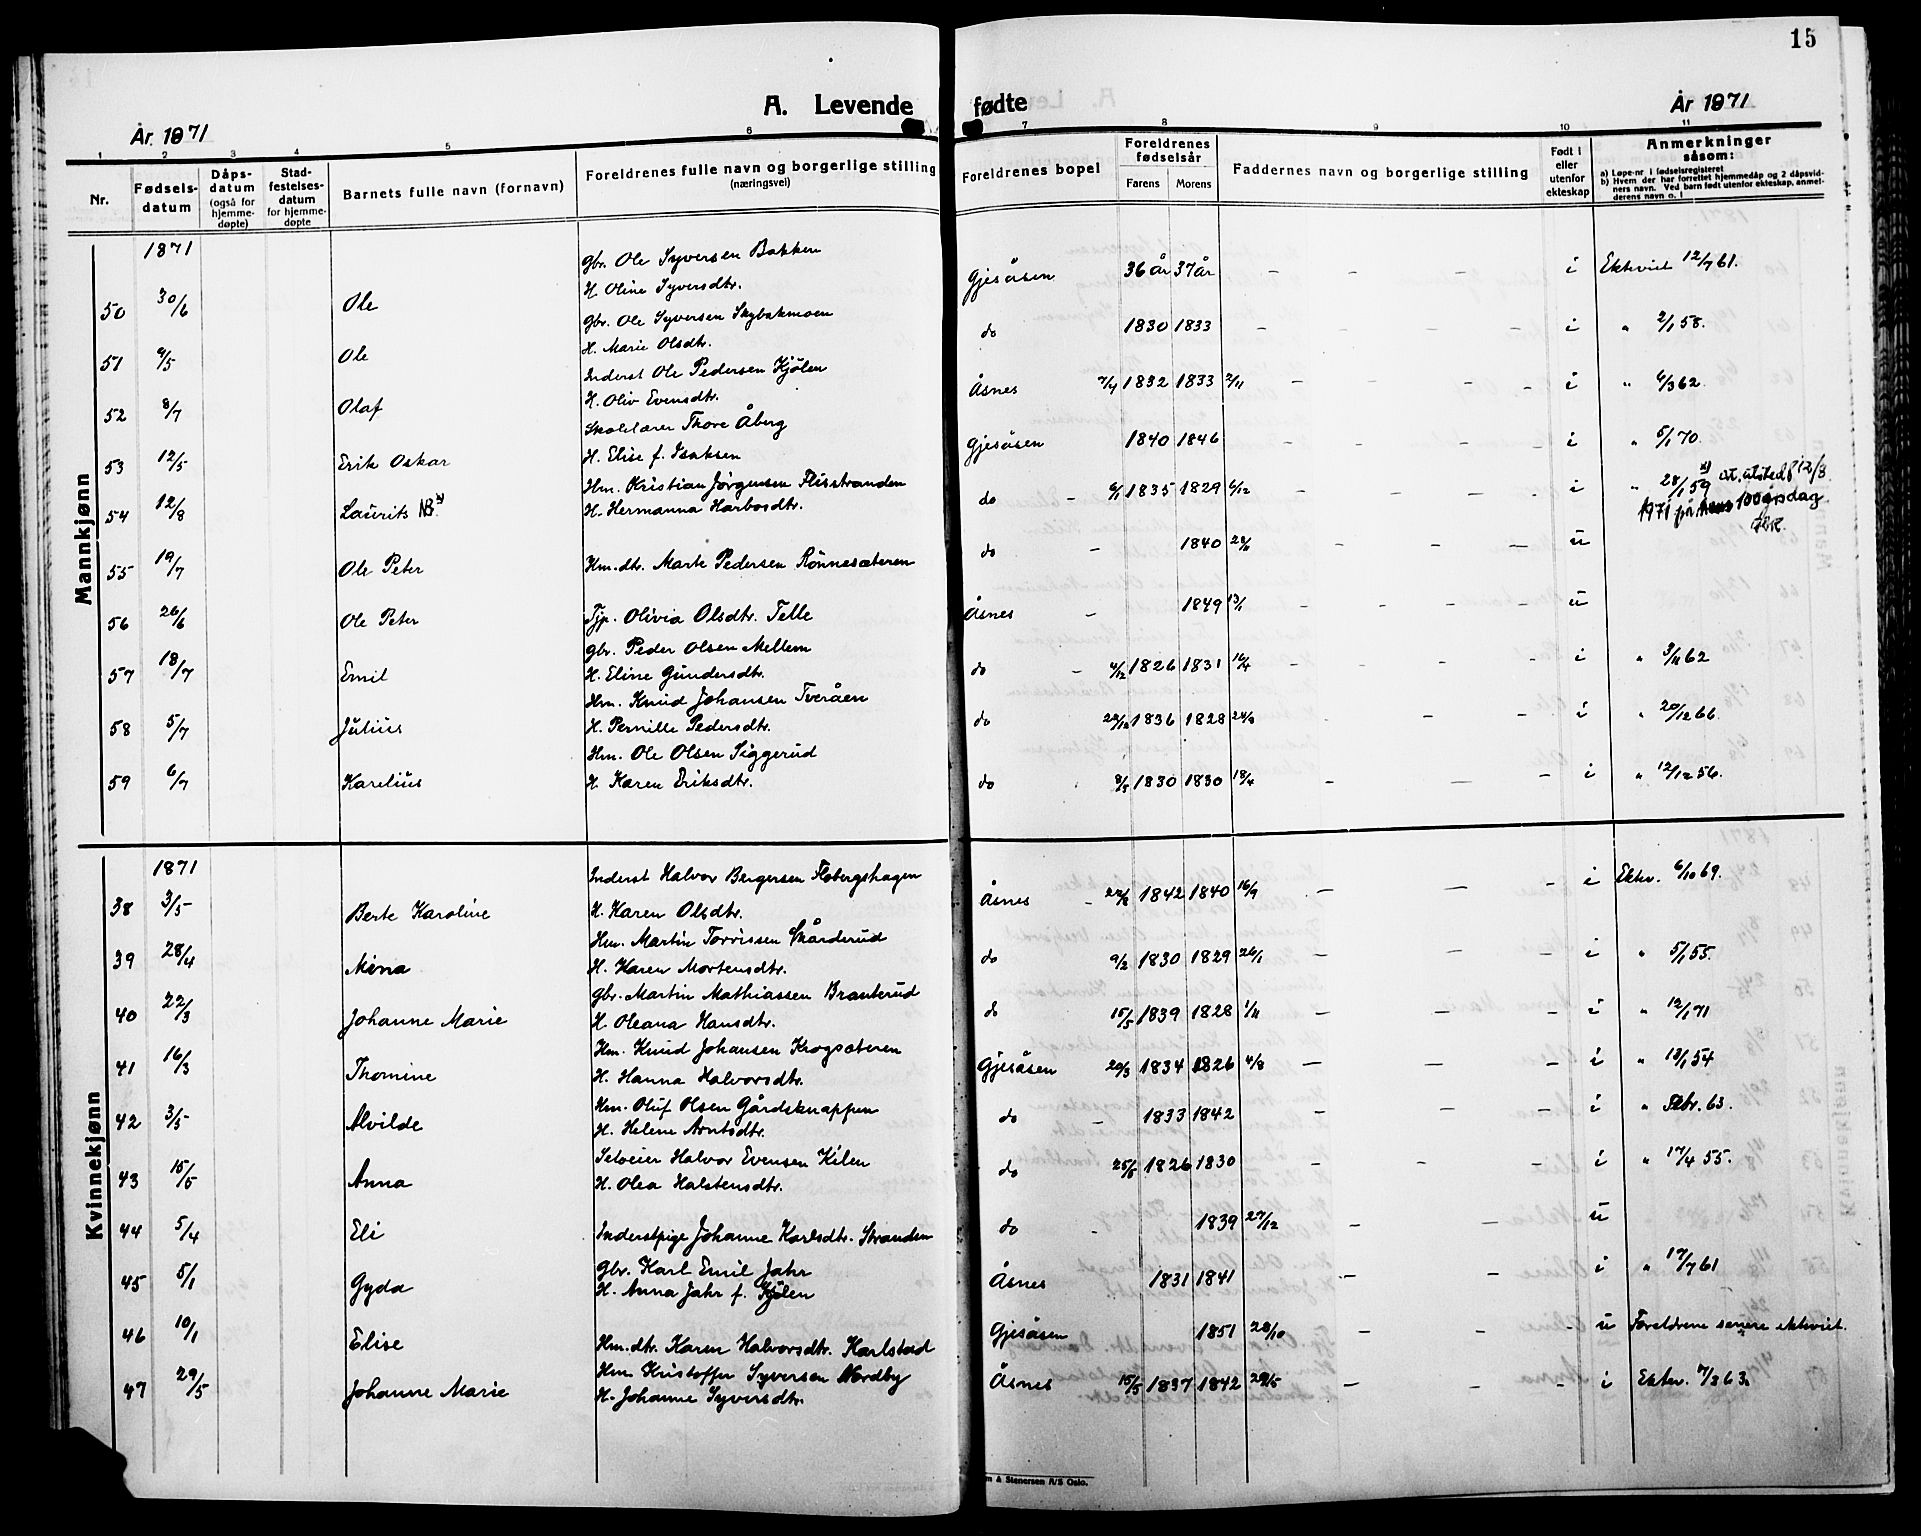 15
A. Levende fødte
År 1871
År 1871
1 2 3 4 5 6 7 8 9 10 11
Nr.
Fødsels-datum
Dåps-datum (også for hjemme-døpte)
Stad-festelses-datum for hjemme-døpte
Barnets fulle navn (fornavn)
Foreldrenes fulle navn og borgerlige stilling (næringsvei)
Foreldrenes bopel
Foreldrenes fødselsår
Farens Morens
Faddernes navn og borgerlige stilling
Født i eller utenfor ekteskap
Anmerkninger såsom:
a) Løpe-nr. i fødselsregisteret
b) Hvem der har forrettet hjemmedåp og 2 dåpsvidners navn. Ved barn født utenfor ekteskap, anmelderens navn o. l
Mannkjønn
1871
Gbr. Ole Syversen Bakken
50 30/6 Ole H. Oline Syversdtr. Gjesåsen 36 år 37 år - - - i Ektviet 12/7 61.
Gbr. Ole Syversen Skybakmoen
51 9/5 Ole H. Marie Olsdtr. do 1830 1833 - - - i " 2/1 58.
Inderst Ole Pedersen Kjølen
52 8/7 Olaf H. Oliv Evensdtr. Åsnes 7/4 1832 1833 2/11 - - - - i " 6/3 62.
Skolelærer Thore Åberg
53 12/5 Erik Oskar H. Elise f. Isaksen Gjesåsen 1840 1846 - - - i " 5/1 70.
Hm. Kristian Jørgensen Flisstranden
54 12/8 Laurits NB x) H. Hermanna Harbosdtr. do - 6/1 1835 1829 6/12 - - - i " 28/1 59 x) at. utsted 12/8
1971 på hans 100 årsdag
55 19/7 Ole Peter Hm.dtr. Marte Pedersen Rønnesæteren do - 1840 28/11 - - - u
56 26/6 Ole Peter Tjp. Olivia Olsdtr. Telle Åsnes - 1849 13/1 - - - - u
Gbr. Peder Olsen Mellem
57 18/7 Emil H. Eline Gundersdtr. do - 4/12 1826 1831 16/4 - - - - i " 3/11 62
Hm. Knud Johansen Tveråen
58 5/7 Julius H. Pernille Pedersdtr. do 22/10 1836 1828 24/8 - - - i " 20/12 66.
Hm. Ole Olsen Siggerud
59 6/7 Karelius H. Karen Eriksdtr. do 8/5 1830 1830 18/4 - - - i " 12/12 56.
Kvinnekjønn
1871
Inderst Halvor Bergersen Flobergshagen
38 3/5 Berte Karoline H. Karen Olsdtr. Åsnes - 22/6 1842 1840 16/9 - - - i Ektv. 6/10 69.
Hm. Martin Torrissen Skårderud
39 28/4 Mina H. Karen Mortensdtr. do 9/2 1830 1829 26/1 - - - i " 5/1 55.
Gbr. Martin Mathiassen Branterud
40 22/3 Johanne Marie H. Oleana Hansdtr. do 15/5 1839 1828 1/11 - - - i " 12/1 71
Hm. Knud Johansen Krogsæteren
41 16/3 Thomine H. Hanna Halvorsdtr. Gjesåsen 20/3 1834 1826 4/8 - - - i " 13/1 54
Hm. Oluf Olsen Gårdsknappen
42 3/5 Alvilde H. Helene Arntsdtr. do - 1833 1842 - - - i " Febr. 63.
Seloeier Halvor Evensen Kilen
43 15/5 Anna H. Olea Halstensdtr. do 25/5 1826 1830 - - - i " 17/4 55.
44 5/4 Eli Inderstpige Johanne Karlsdtr. Stranden do - 1839 27/12 - - - u
Gbr. Karl Emil Jahr
45 5/1 Gyda H. Anna Jahr f. Kjølen Åsnes 1831 1841 - - i " 17/7 61
46 10/1 Elise Hm.dtr. Karen Halvorsdtr. Karlstad Gjesåsen 1851 28/10 - - - u Foreldrene senere ektviet.
Hm Kristoffer Syversen Nordby
47 29/5 Johanne Marie H. Johanne Syversdtr. Åsnes 15/5 1837 1842 29/5 - - - i Ektv. 7/3 63.
m & Stenersen A/S Oslo.